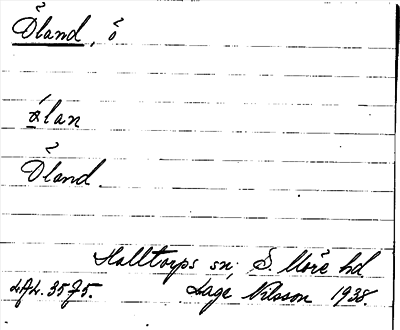 Öland, ö
ölan
Öland.
Halltorps sn, S. Möre hd
LAL. 3575. Lage Nilsson 1938.